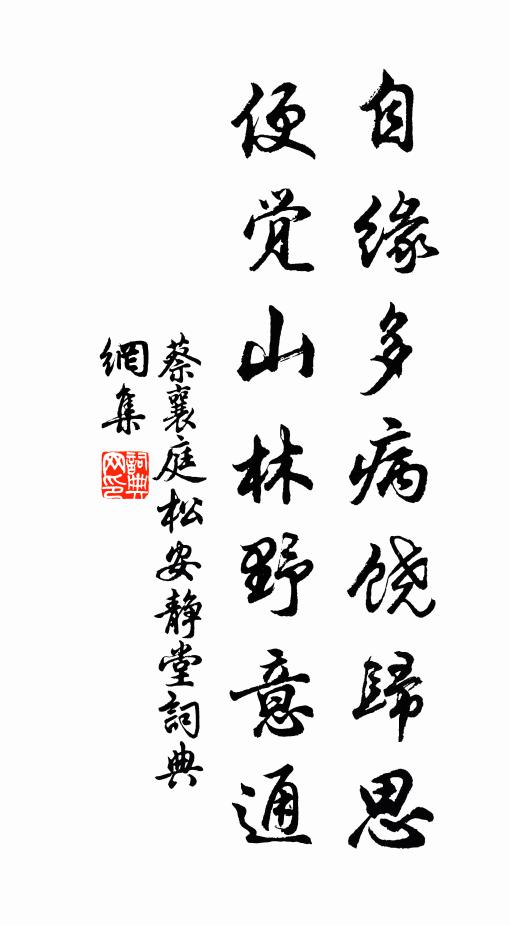 自缘多病饶歸思
便觉山林野意通
蔡襄庭松安静堂詞典
網集
詞典网印